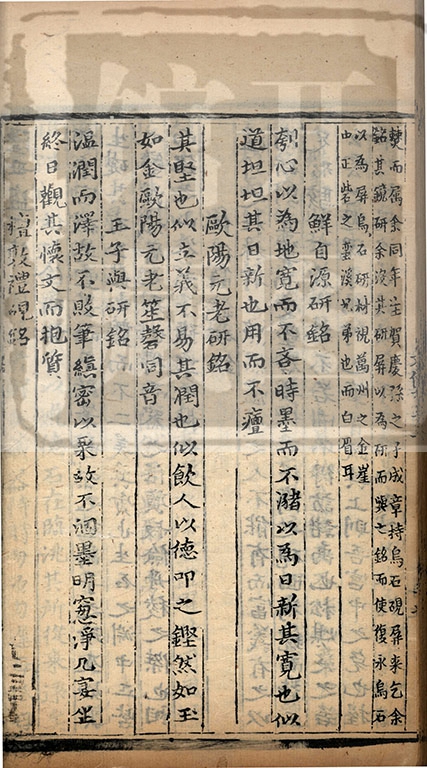 熒而屬余同年生賀慶孫之子成章持烏石硯屏來乞余
銘其硯研余沒其研屏以為研而與之銘而使復求烏石
以為屏烏石研材視萬州之金崖
由正砦之蠻溪兄弟也而白眉耳
鮮自源研銘
刳心以為地寬而不吝時墨而不瀦以為日新其寬也似
道坦坦其日新也用而不㢓
歐陽元老研銘
其堅也似立義不易其潤也似飲人以德叩之鏗然如玉
如金歐陽元老笙磬同音
王子與研銘
溫潤而澤故不敗筆縝密以栗故不涸墨明窓淨几宴坐
終日觀其懷文而抱質
硯銘